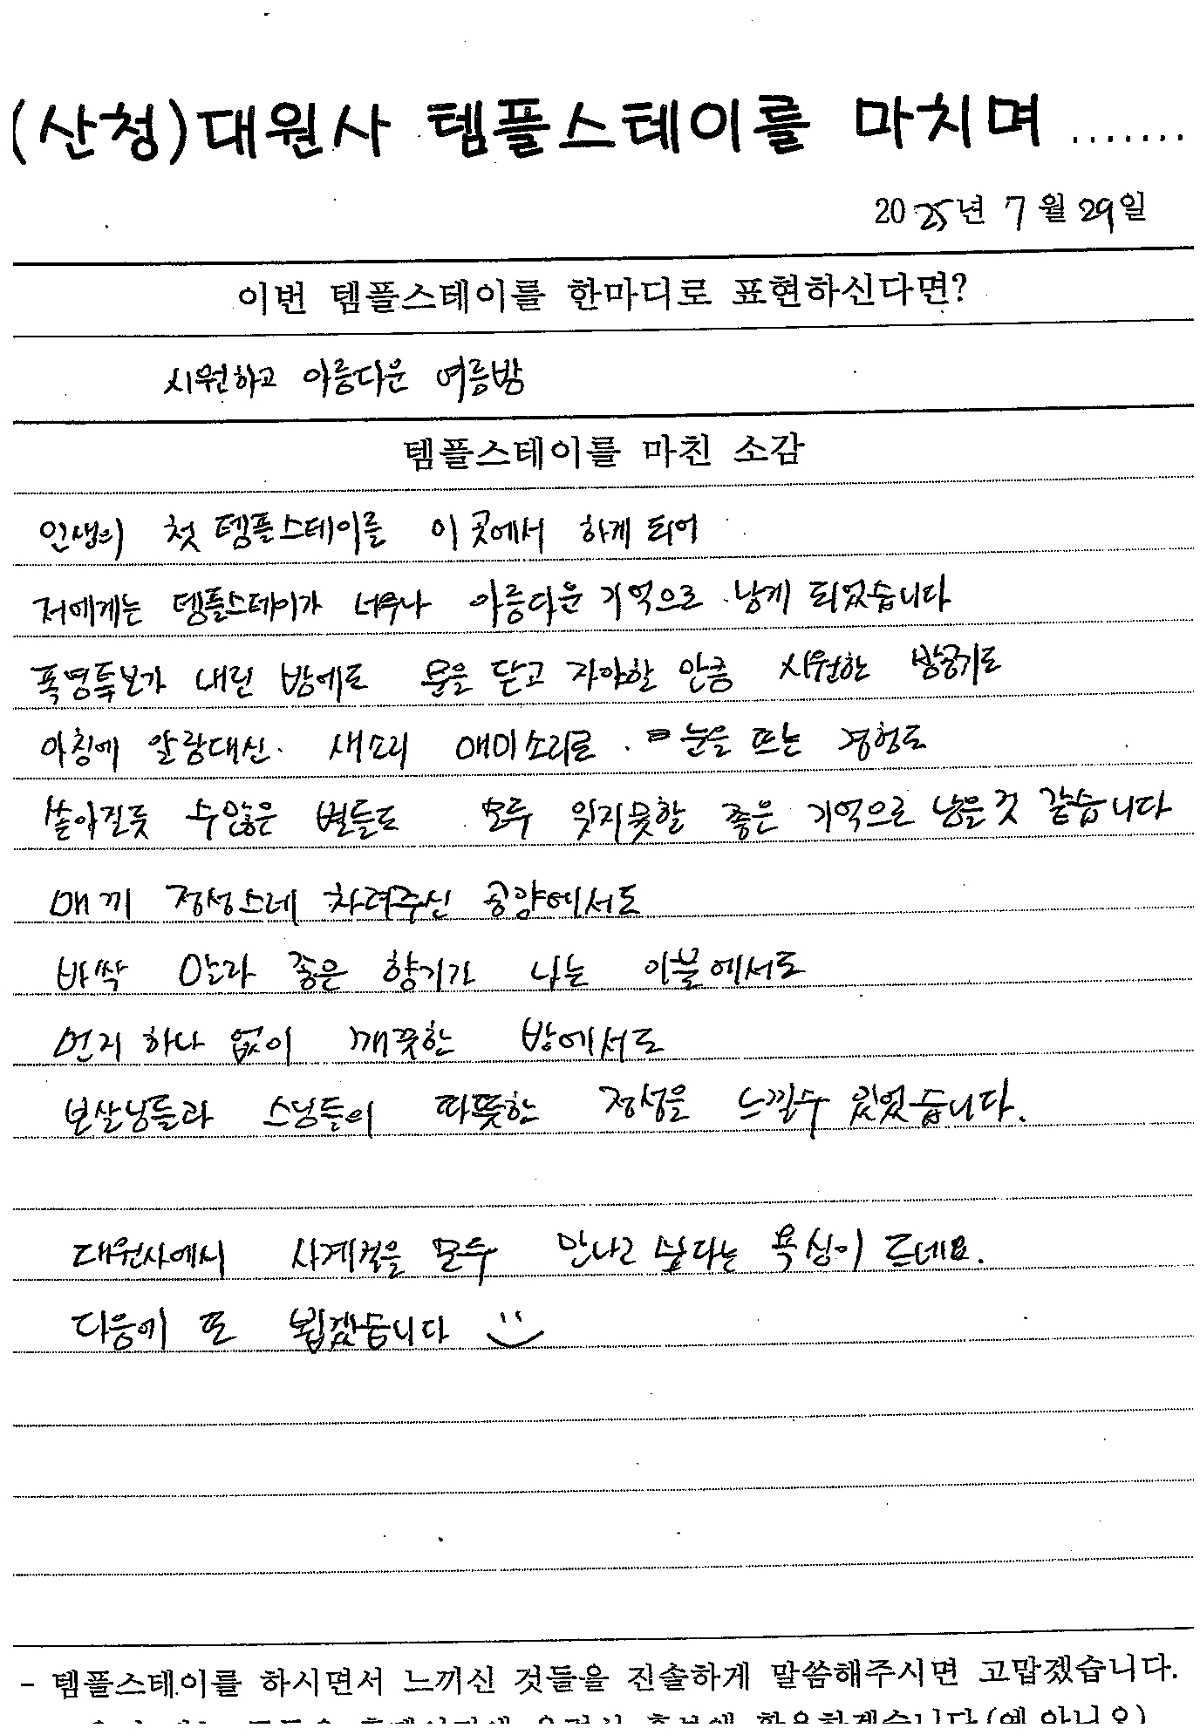 (산청)대원사 템플스테이를 마치며 .......
2025년 7월 29일
이번 템플스테이를 한마디로 표현하신다면?
시원하고 아름다운 여름밤
템플스테이를 마친 소감
인생의 첫 템플스테이를 이 곳에서 하게 되어
저에게는 템플스테이가 너무나 아름다운 기억으로 남게 되었습니다
폭염특보가 내린 밤에도 문을 닫고 자야할 만큼 시원한 방공기로
아침에 알람대신 새소리 매미소리로 눈을 뜨는 경험도
쏟아질듯 수많은 별들도 모두 잊지못할 좋은 기억으로 남을것 같습니다
매 끼 정성스레 차려주신 공양에서도
바싹 말라 좋은 향기가 나는 이불에서도
먼지 하나 없이 깨끗한 방에서도
보살님들과 스님들의 따뜻한 정성을 느낄수 있었습니다.
대원사에서 사계절을 모두 만나고 싶다는 욕심이 드네요.
다음에 또 뵙겠습니다
- 템플스테이를 하시면서 느끼신 것들을 진솔하게 말씀해주시면 고맙겠습니다.